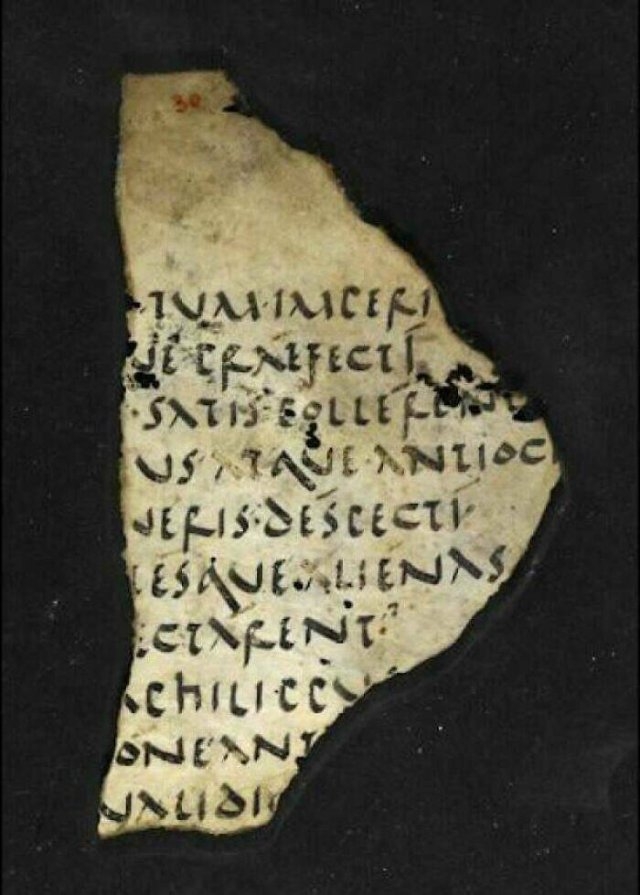 30
TUM·IMPERI
UE PRAEFECTI
·SATIS·POLLERENT
US·ATQUE·ANTIOC
UERIS·DÉSPECTI
ESQUE·ALIENAS
CTARENT
PHILIPPU
ONE·ANT
UALIDI